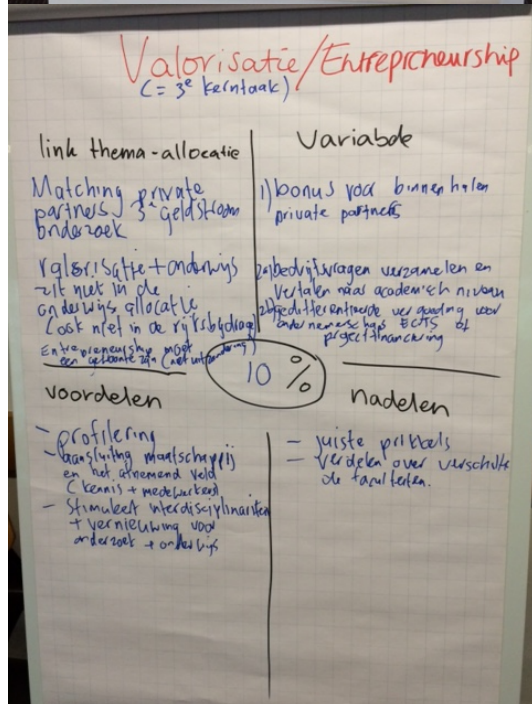 Valorisatie/Entrepreneurship
(= 3e kerntaak)
link thema-allocatie
Matching private
partners 3e geldstroom
onderzoek
valorisatie + onderwijs
zit niet in de
onderwijs allocatie
(ook niet in de rijksbijdrage)
Entrepreneurship moet
een gewoonte zijn (niet uitzondering)
Variabele
1) bonus voor binnenhalen
private partners
2a) bedrijfsvragen verzamelen en
vertalen naar academisch niveau
2b) gedifferentieerde vergoeding voor
ondernemerschaps ECTS of
projectfinanciering
10 %
voordelen
- profilering
- aansluiting maatschappij
en het afnemend veld
(kennis + medewerkers)
- stimuleert interdisciplinariteit
+ vernieuwing voor
onderzoek + onderwijs
nadelen
- juiste prikkels
- verdelen over verschillen
de faculteiten.